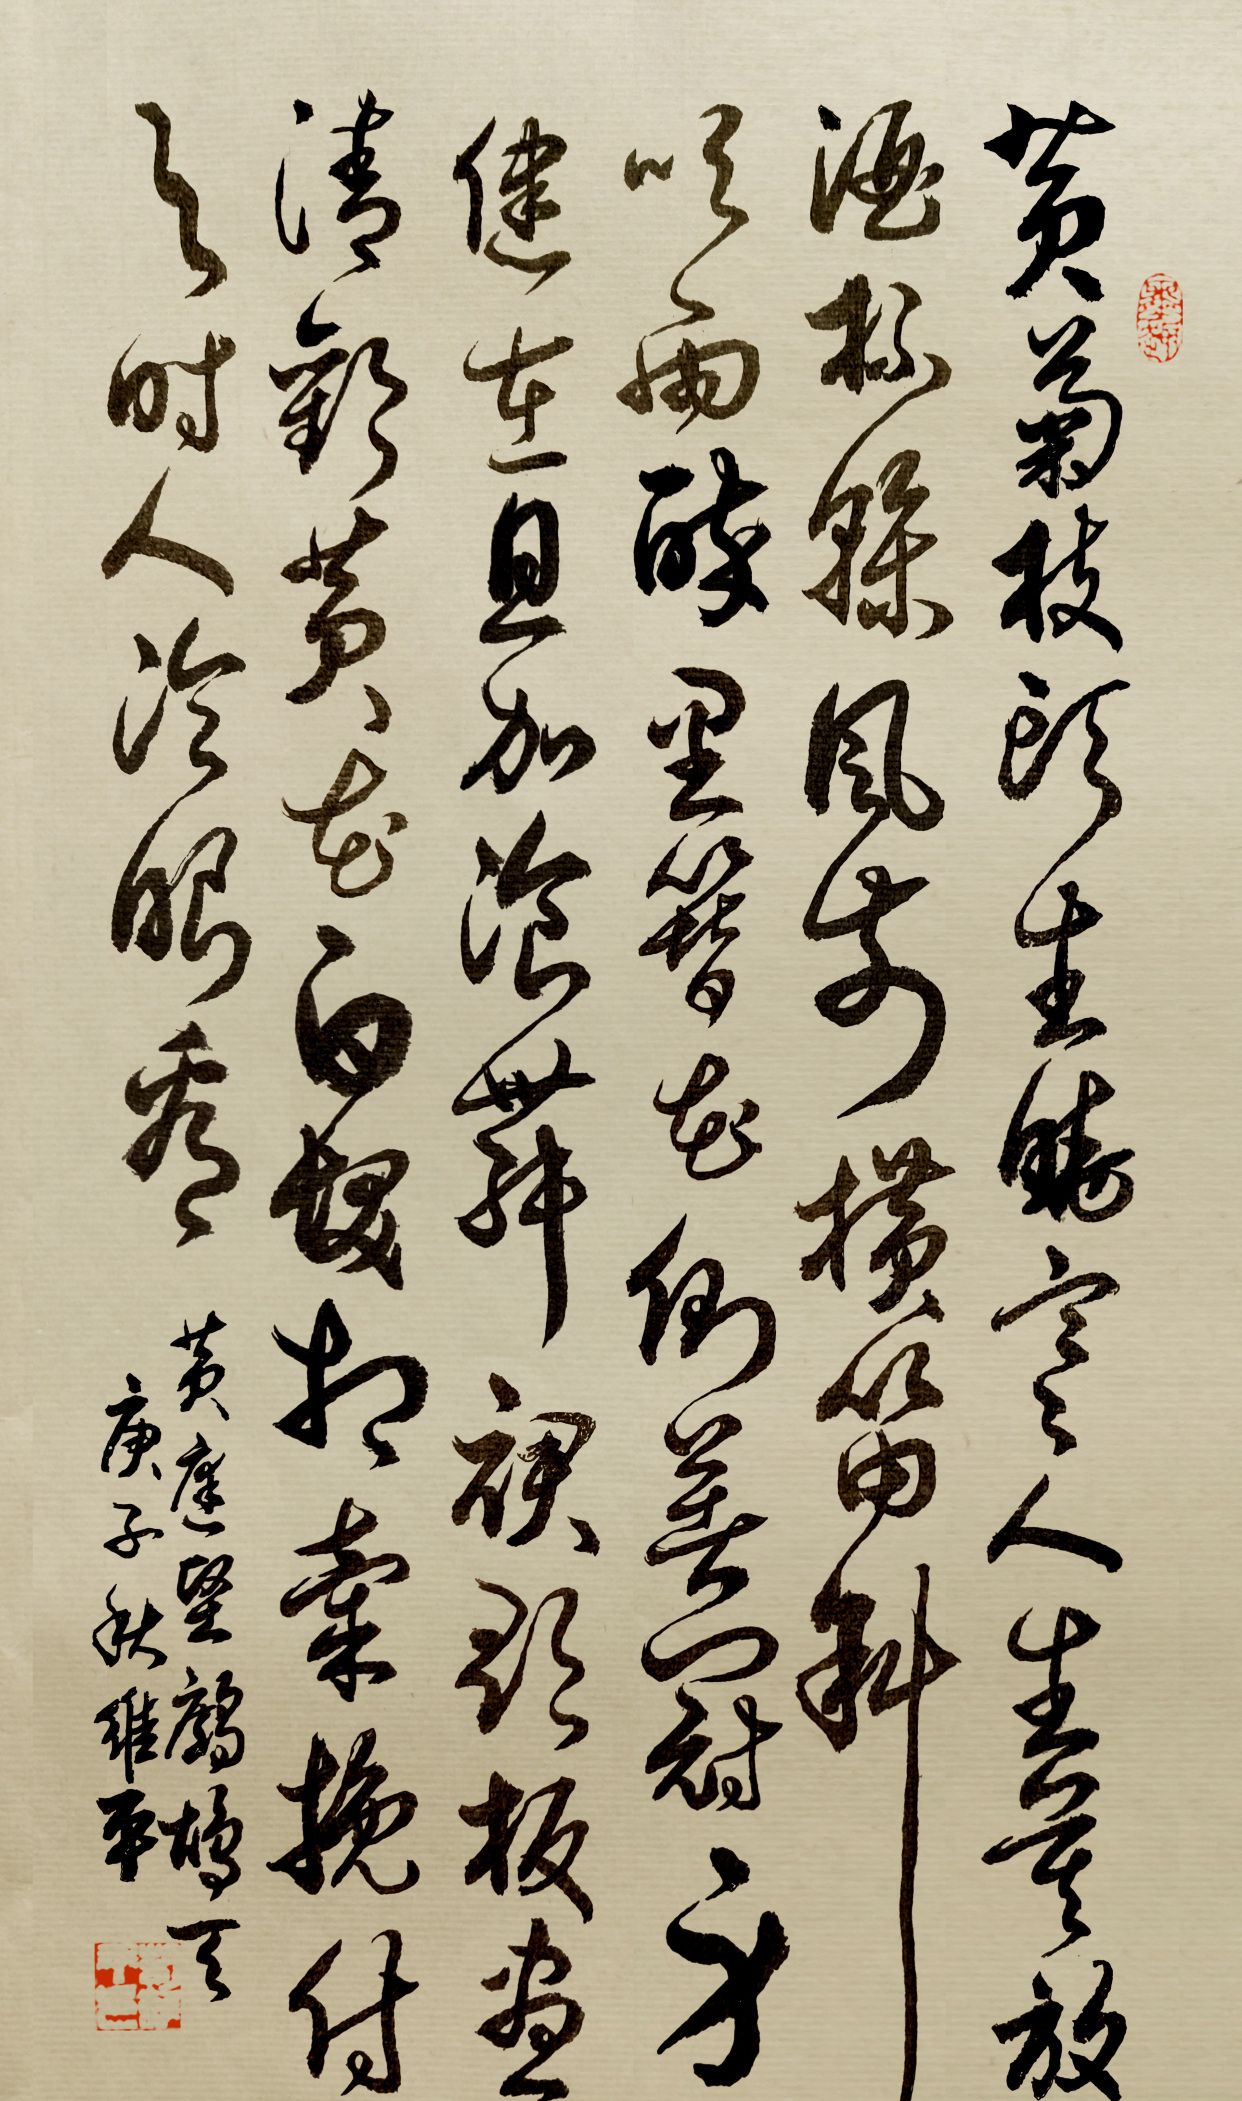 黄菊枝头生晓寒人生莫放
酒杯乾风前横笛斜
吹雨醉里簪花倒著冠身
健在且加飡舞裙歌板尽
清欢黄花白髮相牵挽付
与时人冷眼看
黄庭坚鹧鸪天
庚子秋维平